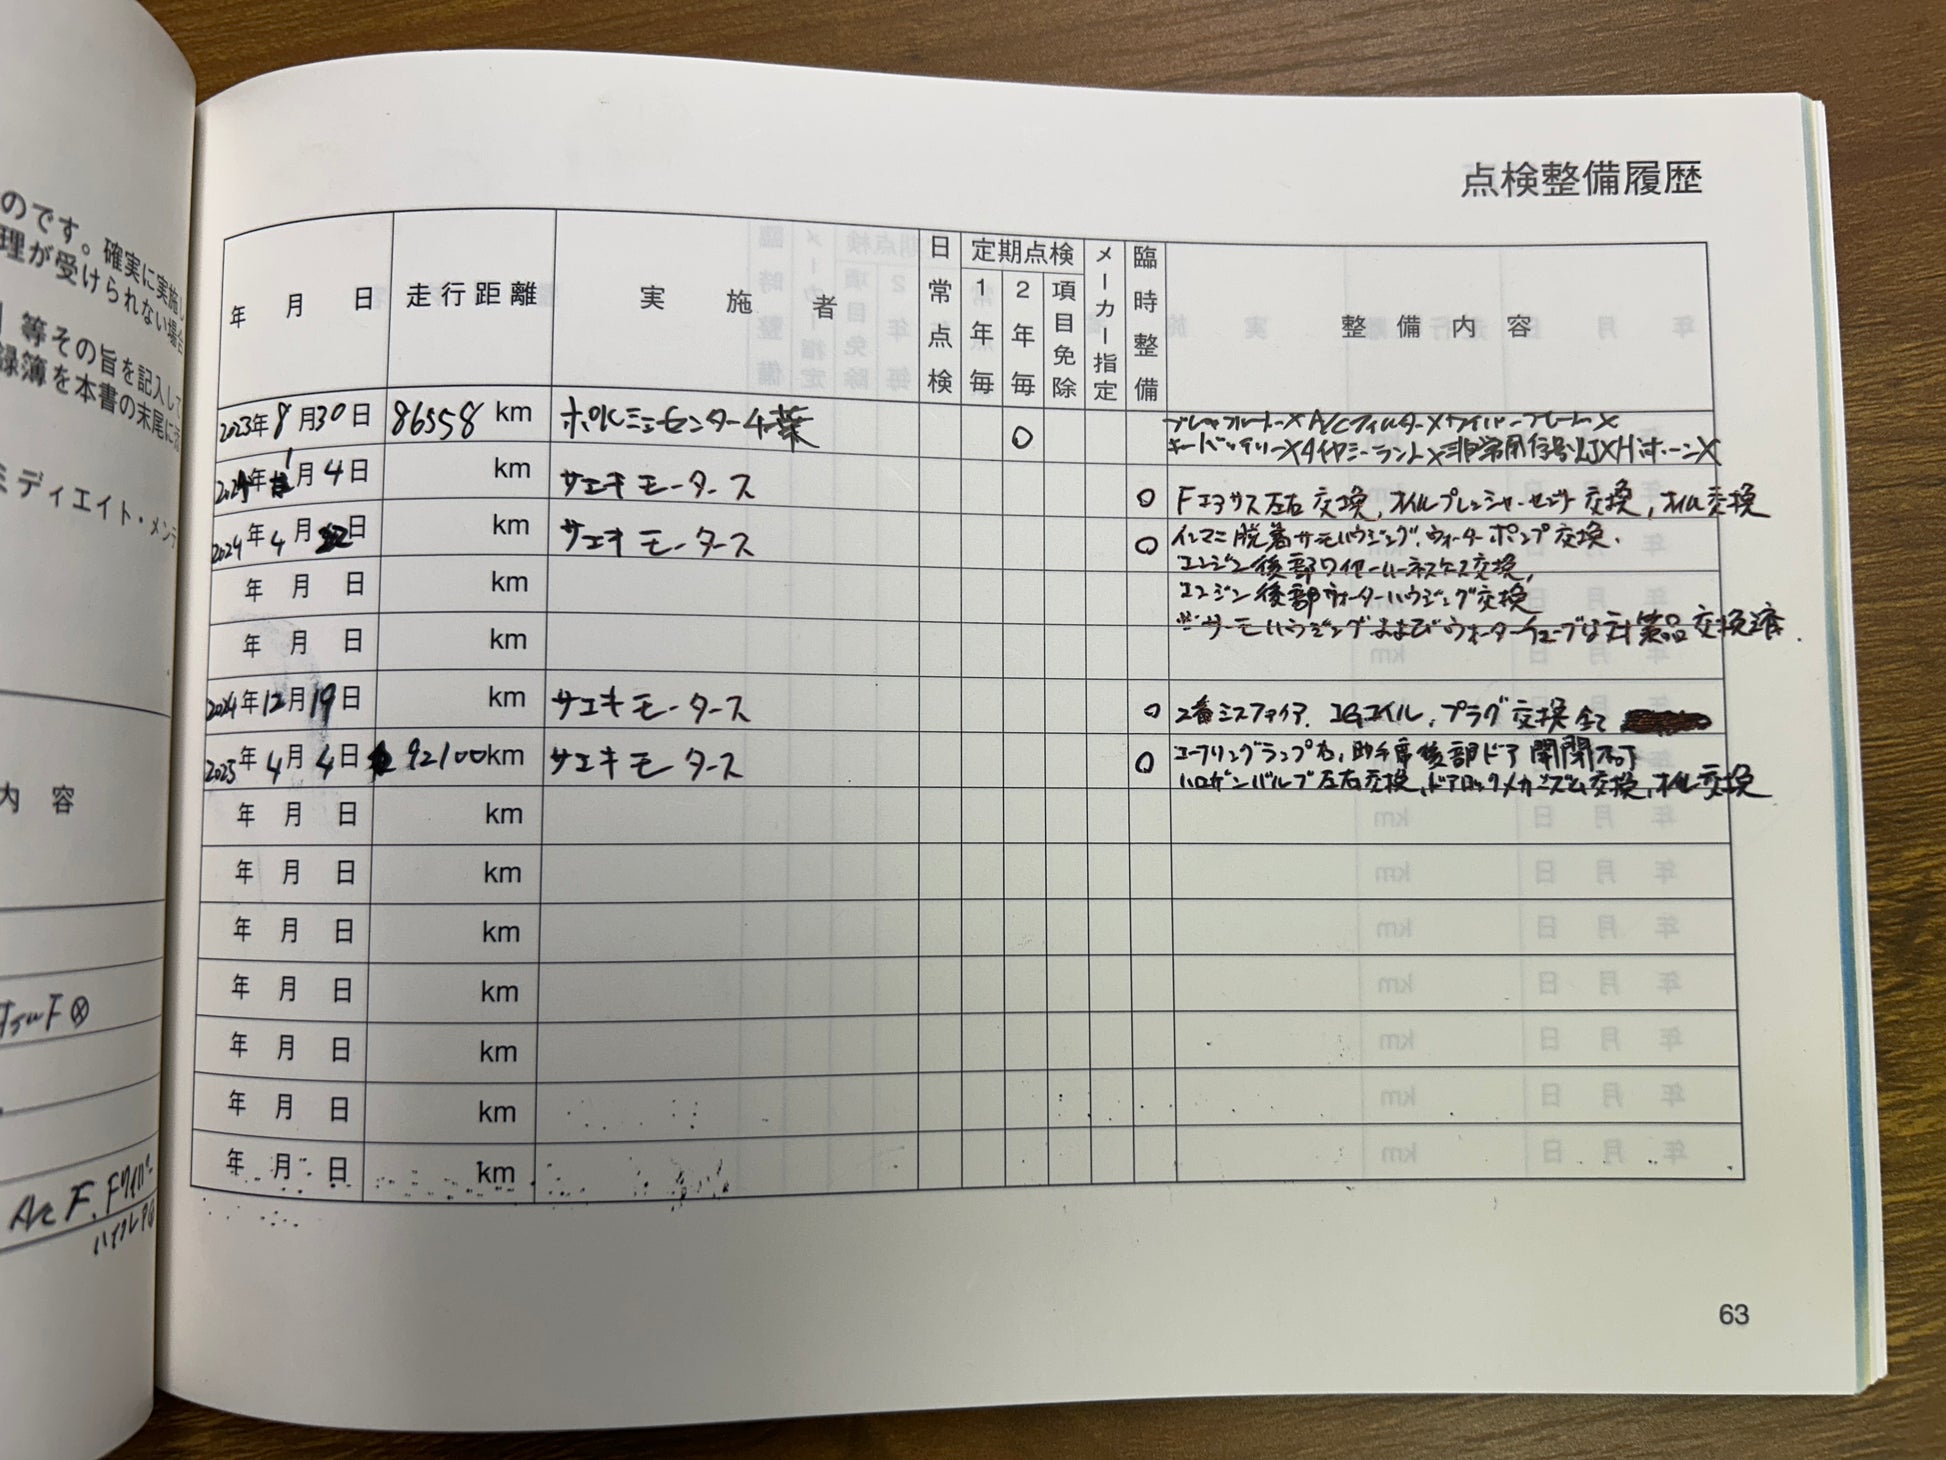 のです。確実に実施し
理が受けられない場合
等その旨を記入して
録簿を本書の末尾に
ミディエイト・メンテ
内 容
F ⊗
A/C F. Fワイパー
ハイクレア
点検整備履歴
年 月 日 走行距離 実施者 日常点検 定期点検 1年毎 2年毎 項目免除 メーカー指定 臨時整備 整備内容
2023年8月30日 86558 km ポルシェセンター千葉 ○ ブレーキフルード-X A/CフィルターX ワイパーブレードX
キーバッテリーX タイヤシーラントX 非常用信号灯X Hiホーン-X
2024年1月4日 km サエキモータース ○ Fエアサス左右交換, オイルプレッシャーセンサ交換, オイル交換
2024年4月22日 km サエキモータース ○ インマニ脱着サーモハウジング, ウォーターポンプ交換,
年 月 日 km エンジン後部ワイヤーハーネスケース交換,
エンジン後部ウォーターハウジング交換
年 月 日 km ※サーモハウジングおよびウォーターチューブは対策品交換済.
2024年12月19日 km サエキモータース ○ 2番ミスファイア, IGコイル, プラグ交換全て
2025年4月4日 92100km サエキモータース ○ コーリングランプ右, 助手席後部ドア開閉不可
ハロゲンバルブ左右交換, ドアロックメカニズム交換, オイル交換
年 月 日 km
年 月 日 km
年 月 日 km
年 月 日 km
年 月 日 km
年 月 日 km
年 月 日 km
63